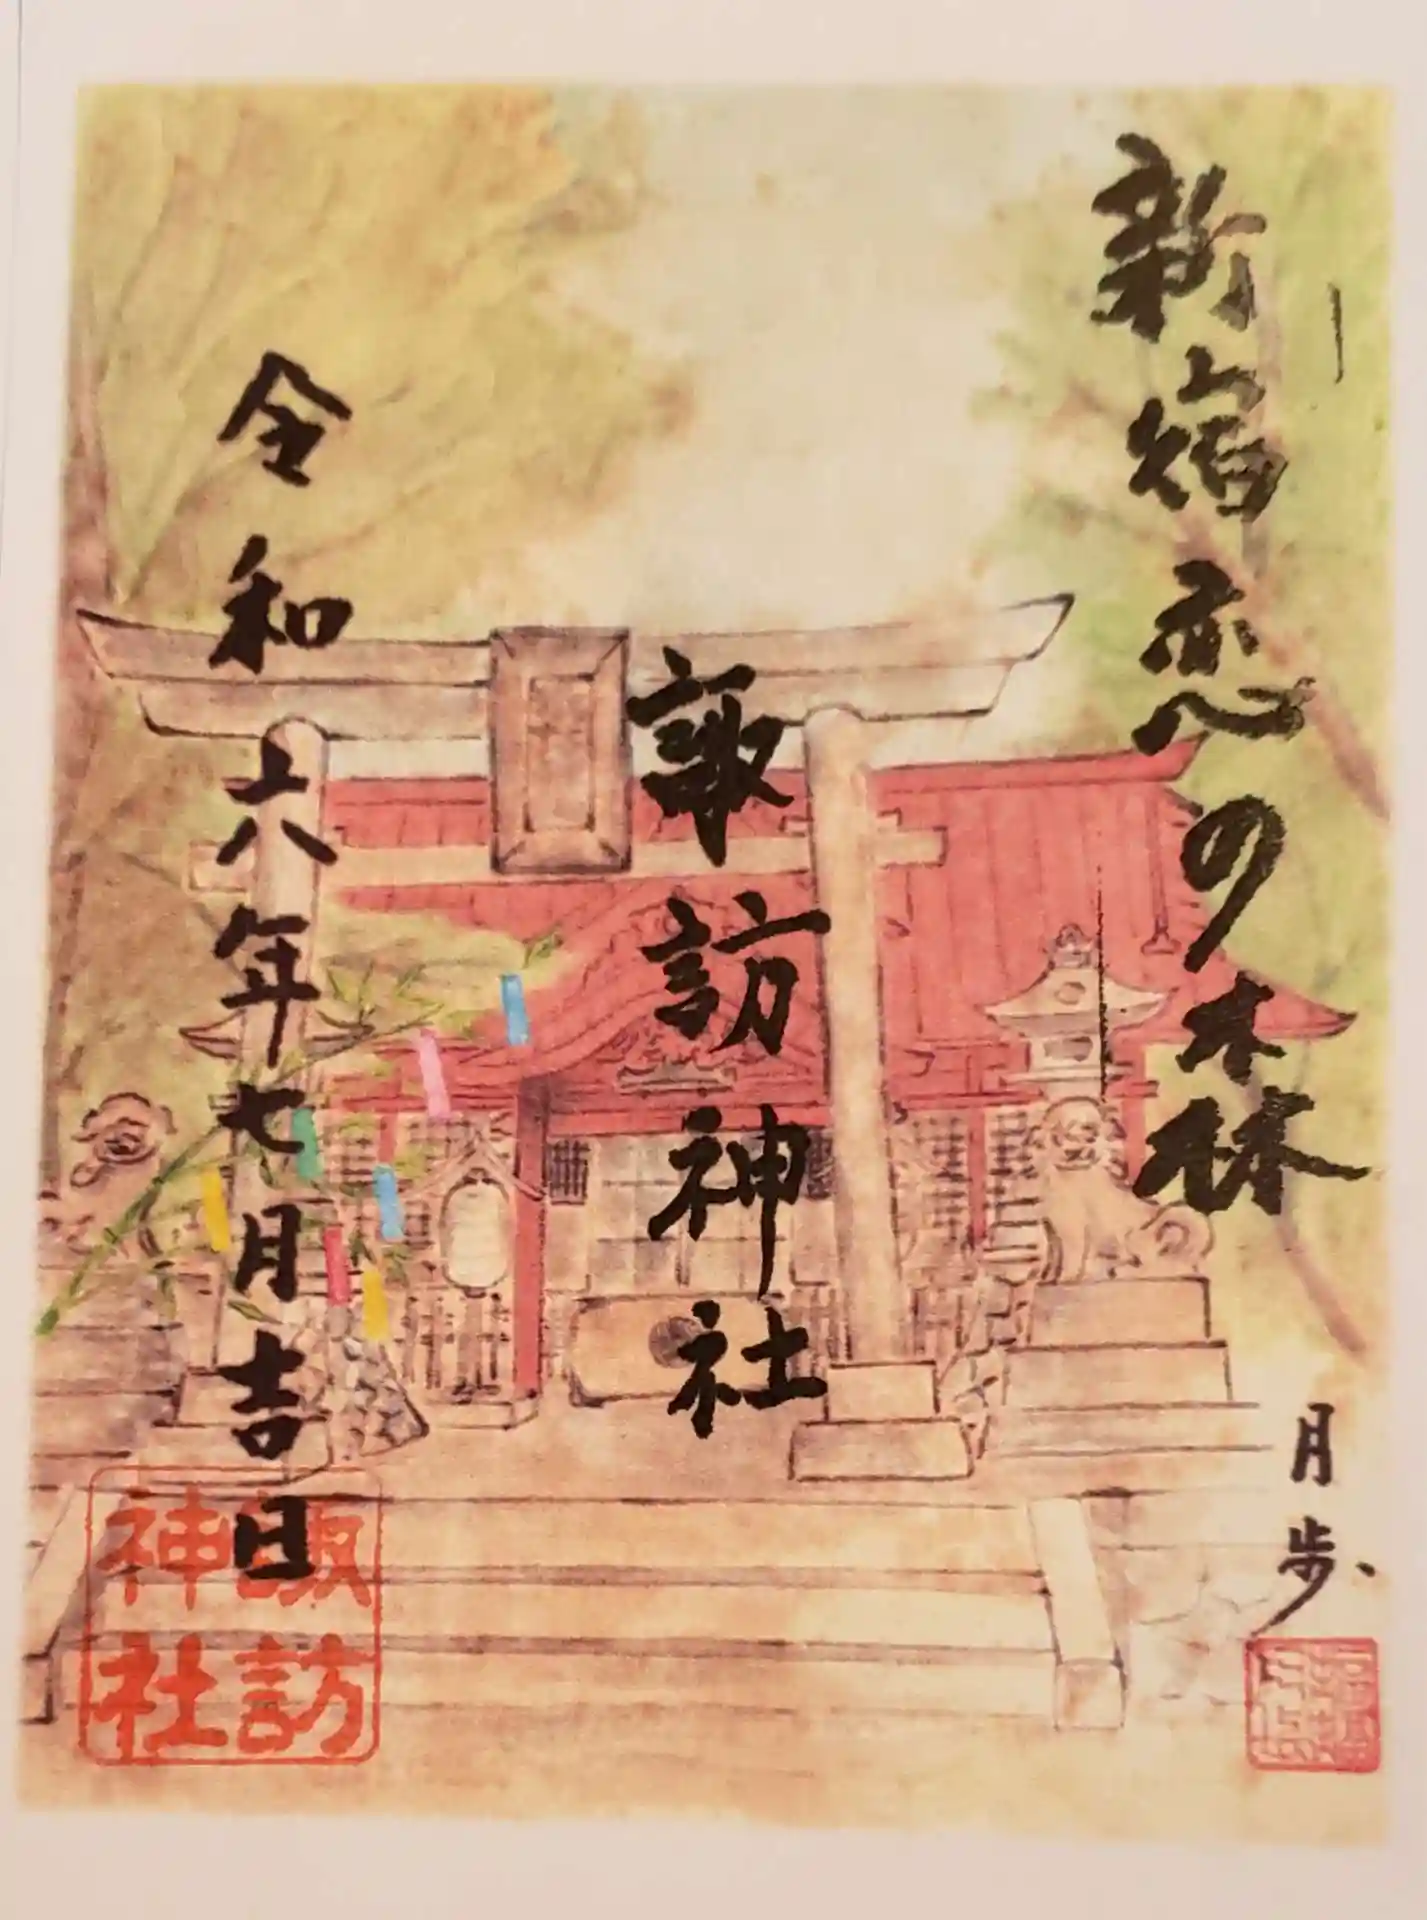 新宿恋の森
月歩
諏訪神社
令和六年七月吉日
諏訪
神社